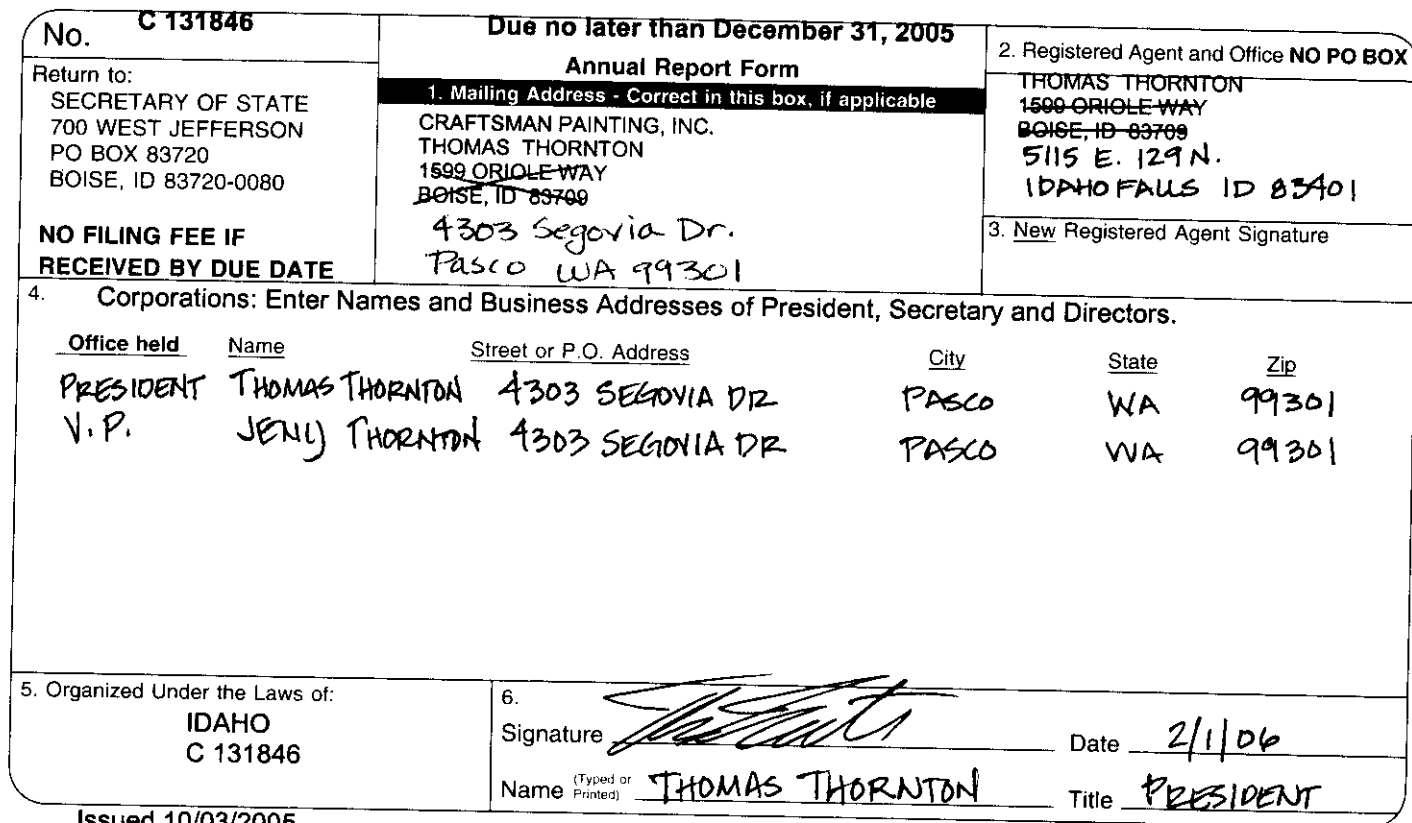 No. C 131846
Return to:
SECRETARY OF STATE
700 WEST JEFFERSON
PO BOX 83720
BOISE, ID 83720-0080
NO FILING FEE IF
RECEIVED BY DUE DATE
Due no later than December 31, 2005
Annual Report Form
1. Mailing Address - Correct in this box, if applicable
CRAFTSMAN PAINTING, INC.
THOMAS THORNTON
1599 ORIOLE WAY
BOISE, ID 83709
4303 Segovia Dr.
Pasco WA 99301
2. Registered Agent and Office NO PO BOX
THOMAS THORNTON
1599 ORIOLE WAY
BOISE, ID 83709
5115 E. 129 N.
IDAHO FALLS ID 83401
3. New Registered Agent Signature
4. Corporations: Enter Names and Business Addresses of President, Secretary and Directors.
Office held Name Street or P.O. Address City State Zip
PRESIDENT THOMAS THORNTON 4303 SEGOVIA DR PASCO WA 99301
V.P. THORNTON 4303 SEGOVIA DR PASCO WA 99301
5. Organized Under the Laws of:
IDAHO
C 131846
6.
Signature Date 2/1/06
Name (Typed or Printed) THOMAS THORNTON Title PRESIDENT
Issued 10/03/2005